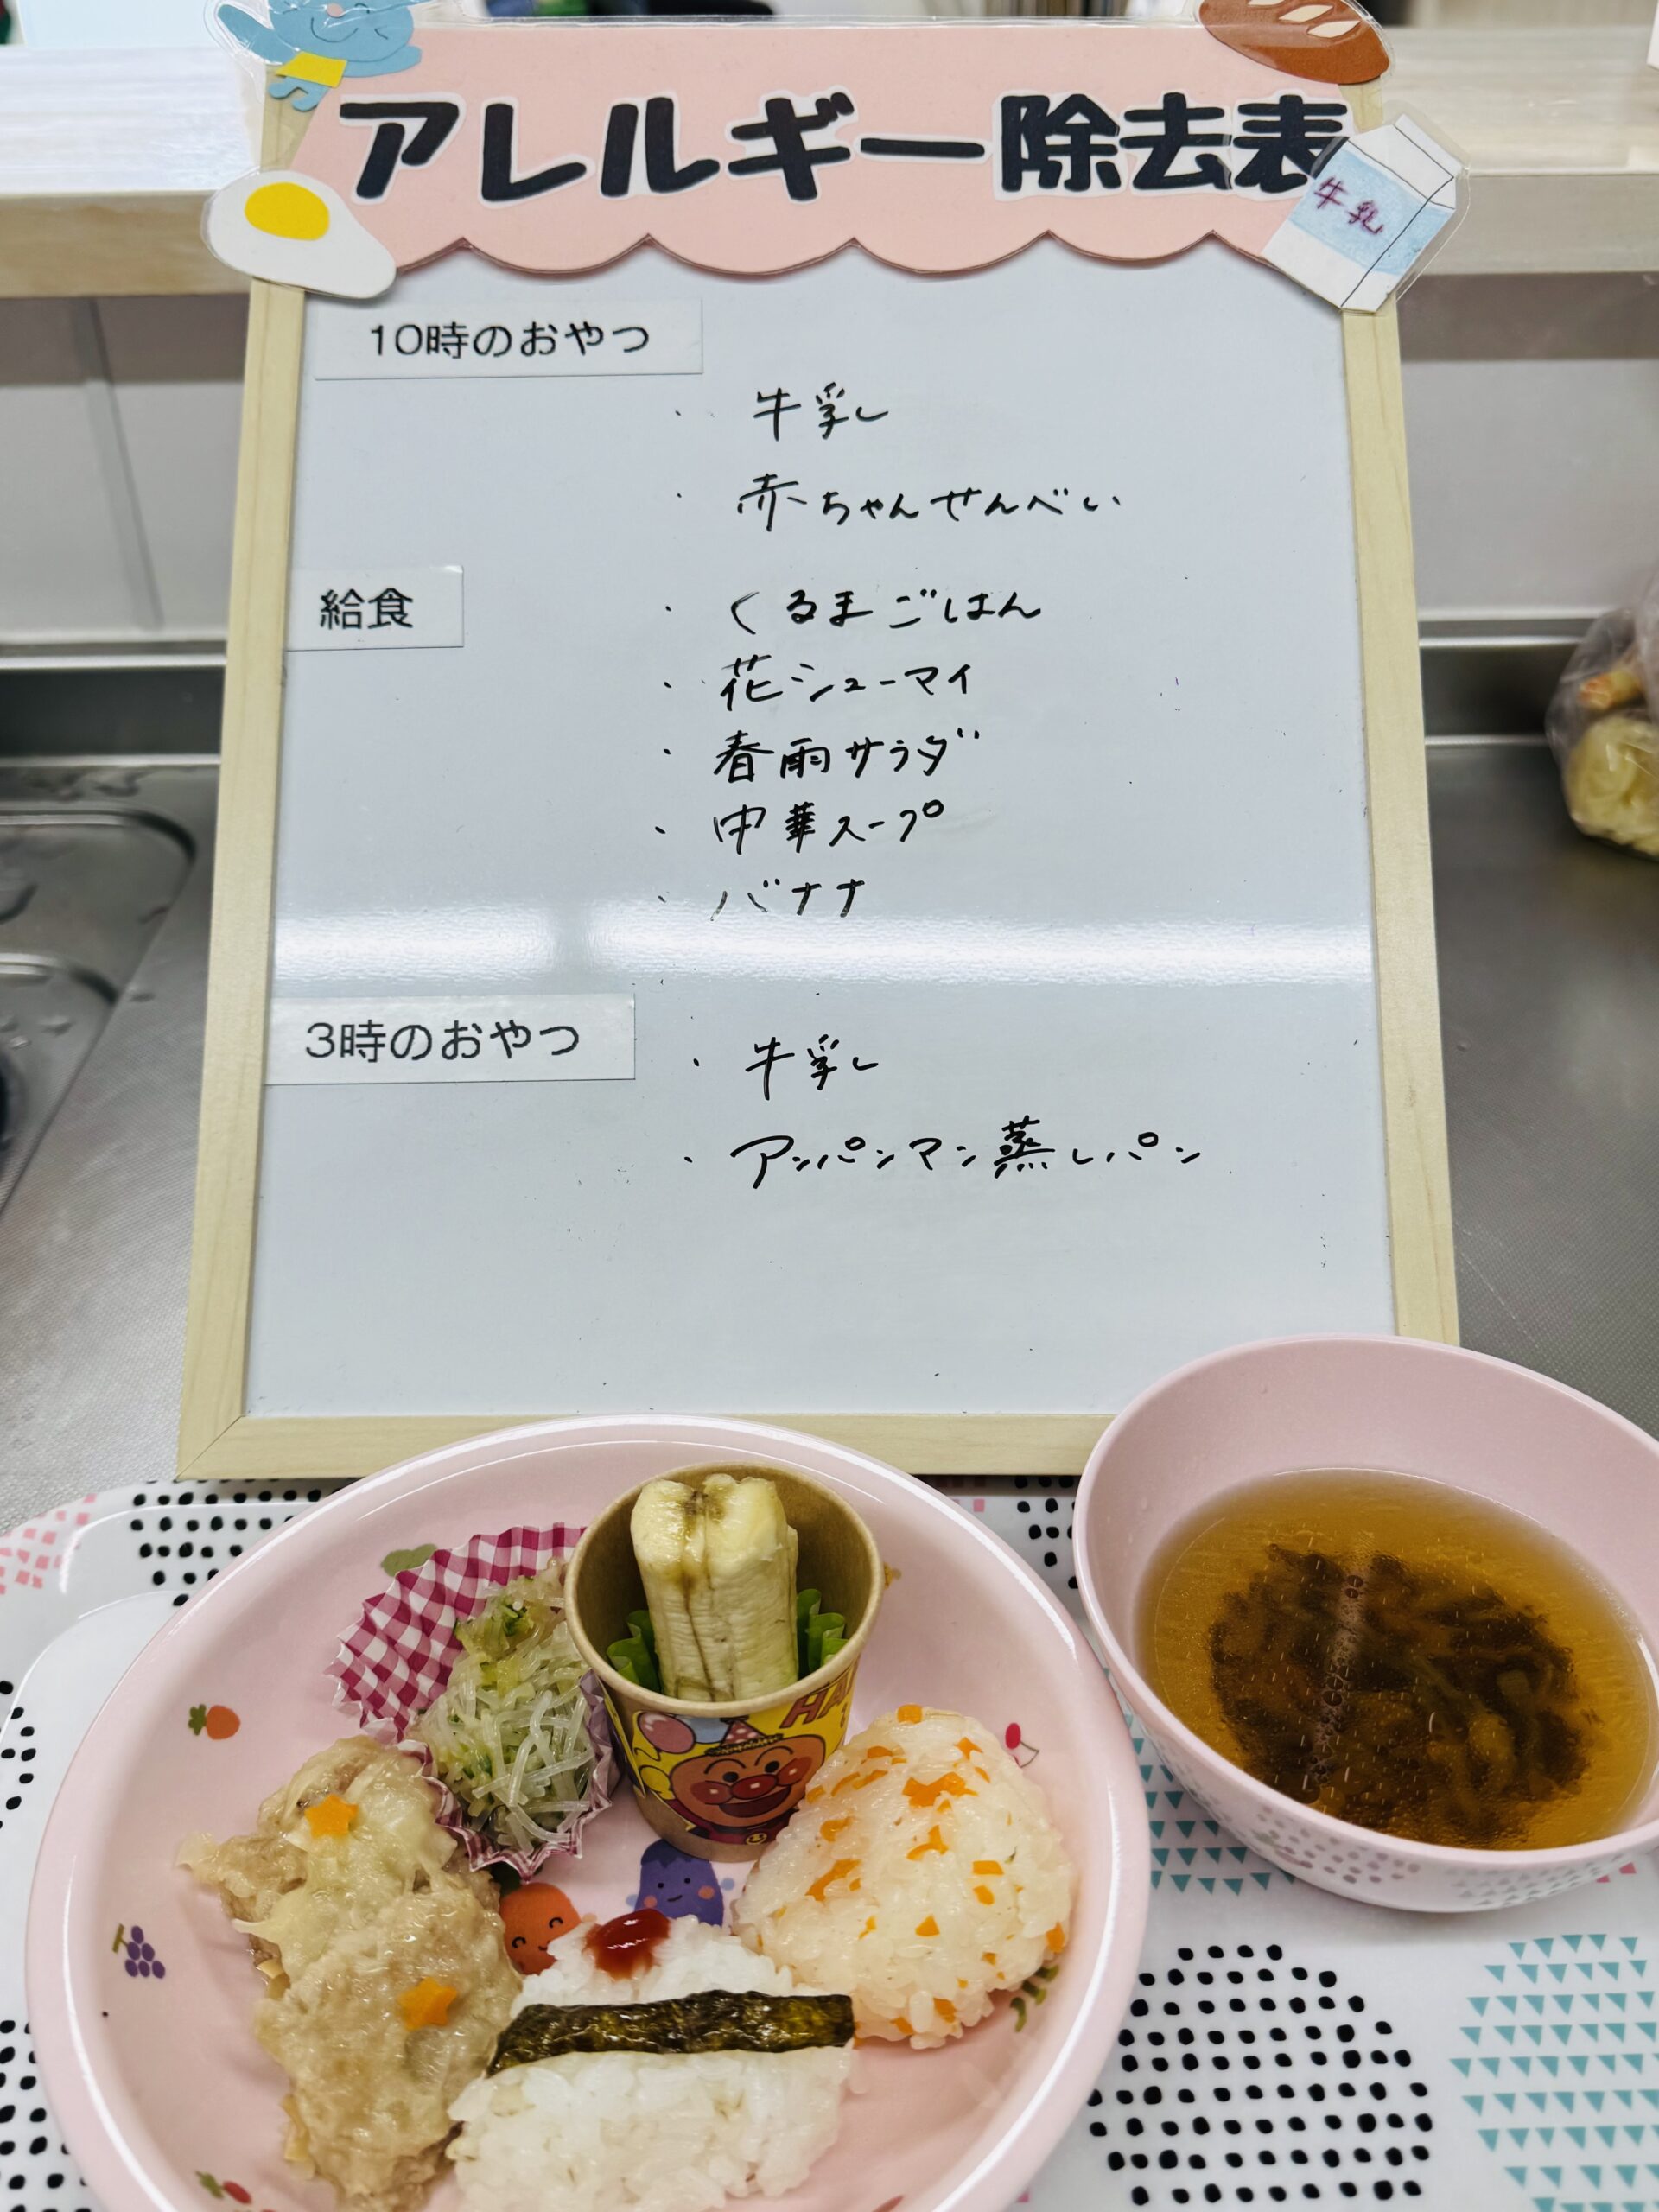 アレルギー除去表
牛乳
10時のおやつ
・牛乳
・赤ちゃんせんべい
給食
・くるまごはん
・花シューマイ
・春雨サラダ
・中華スープ
・バナナ
3時のおやつ
・牛乳
・アンパンマン蒸しパン